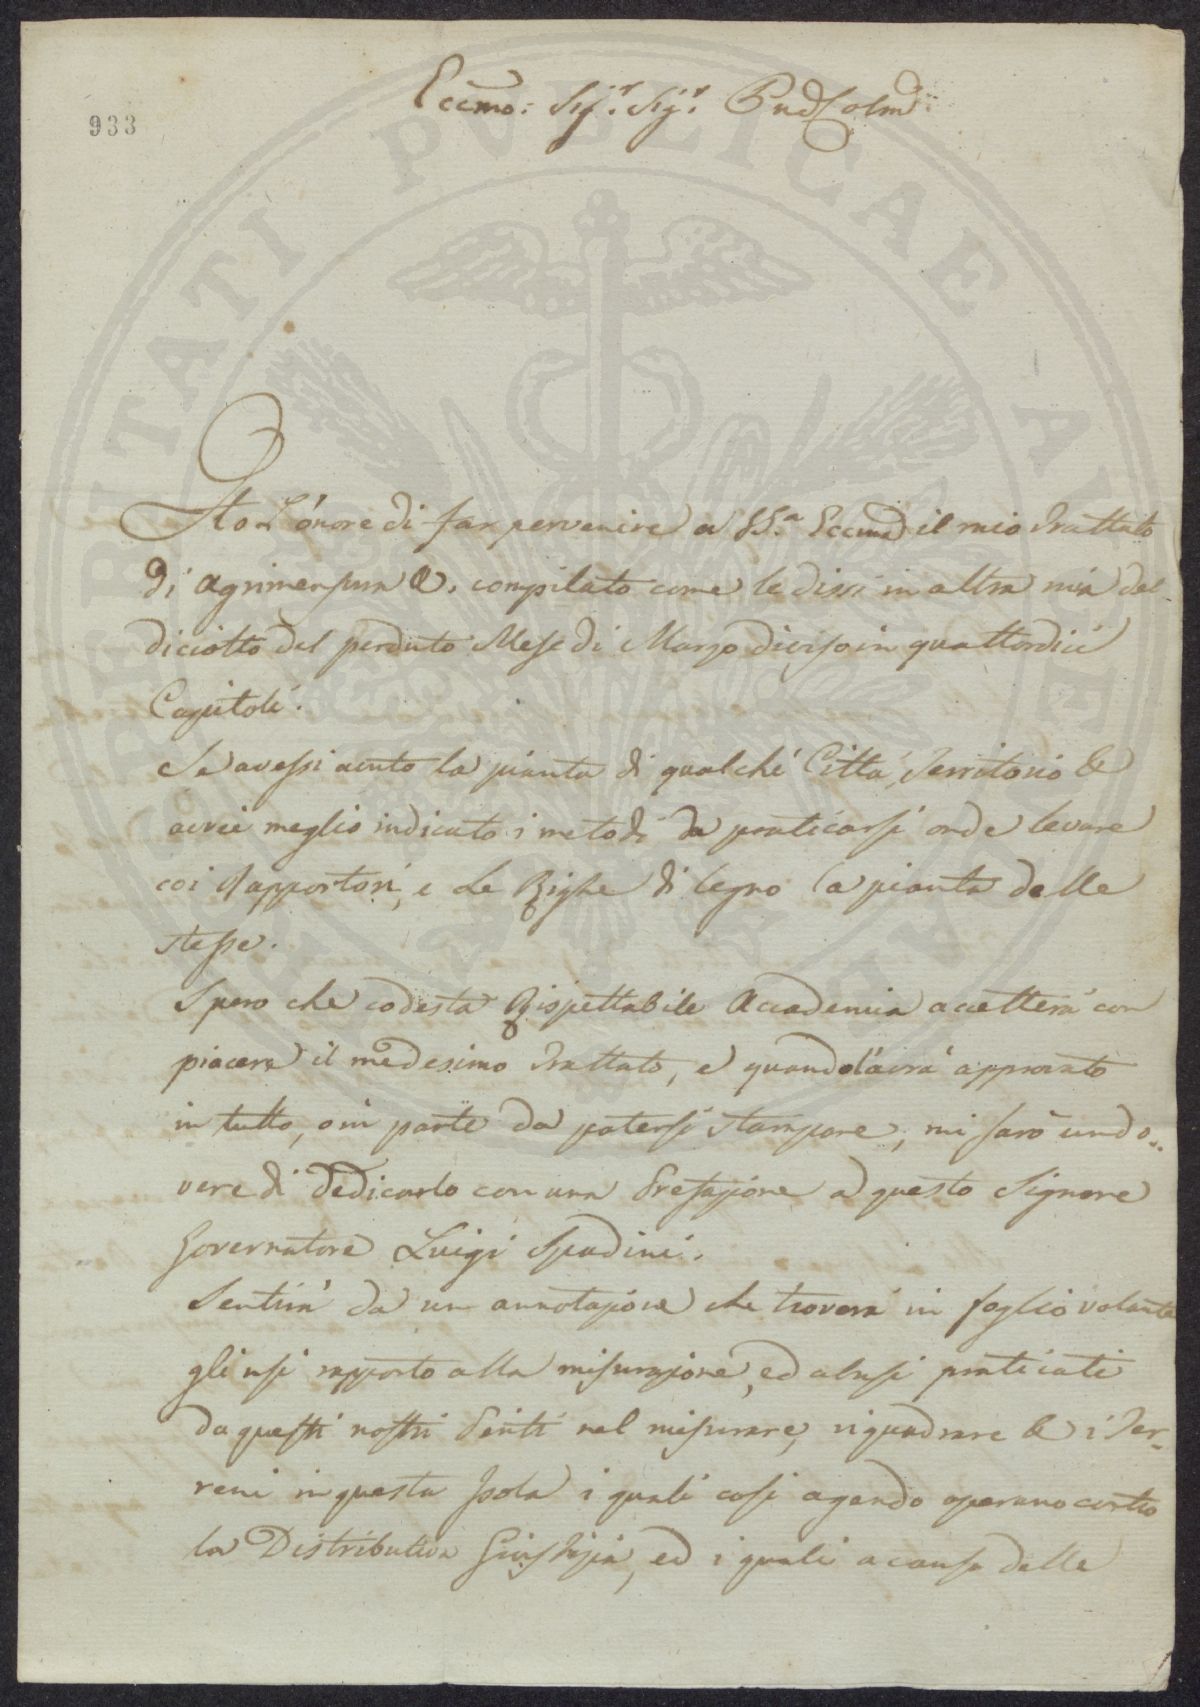 933
Eccmo: Sigr. Sigr. Pnd Colmo
Ho L'onore di far pervenire a SSa. Eccma il mio Trattato
di agrimensura &. compilato come le dissi in altra mia del
diciotto del perduto Mese di Marzo diviso in quattordici
Capitoli.
Se avessi auto la pianta di qualché Cittá, Territorio &
avrei meglio indicato i metodi da praticarsi onde levare
coi Rapportori, e Le Righe di legno la pianta delle
stesse.
Spero che codesta Rispettabile Accademia accetterá con
piacere il medesimo Trattato, e quando l'avrá approvato
in tutto, o in parte da potersi stampare, mi saró un do..
vere di dedicarlo con una Prefazione a questo Signore
Governatore Luigi Spadini.
Sentirá da un annotazione che troverá in foglio volante
gli usi rapporto alla misurazione, ed abusi praticati
da questi nostri Periti nel misurare, riquadrare & i Ter-
reni in questa Isola i quali cosi agendo operano contro
la Distributiva Giustizia, ed i quali a causa delle
PVBLICAE